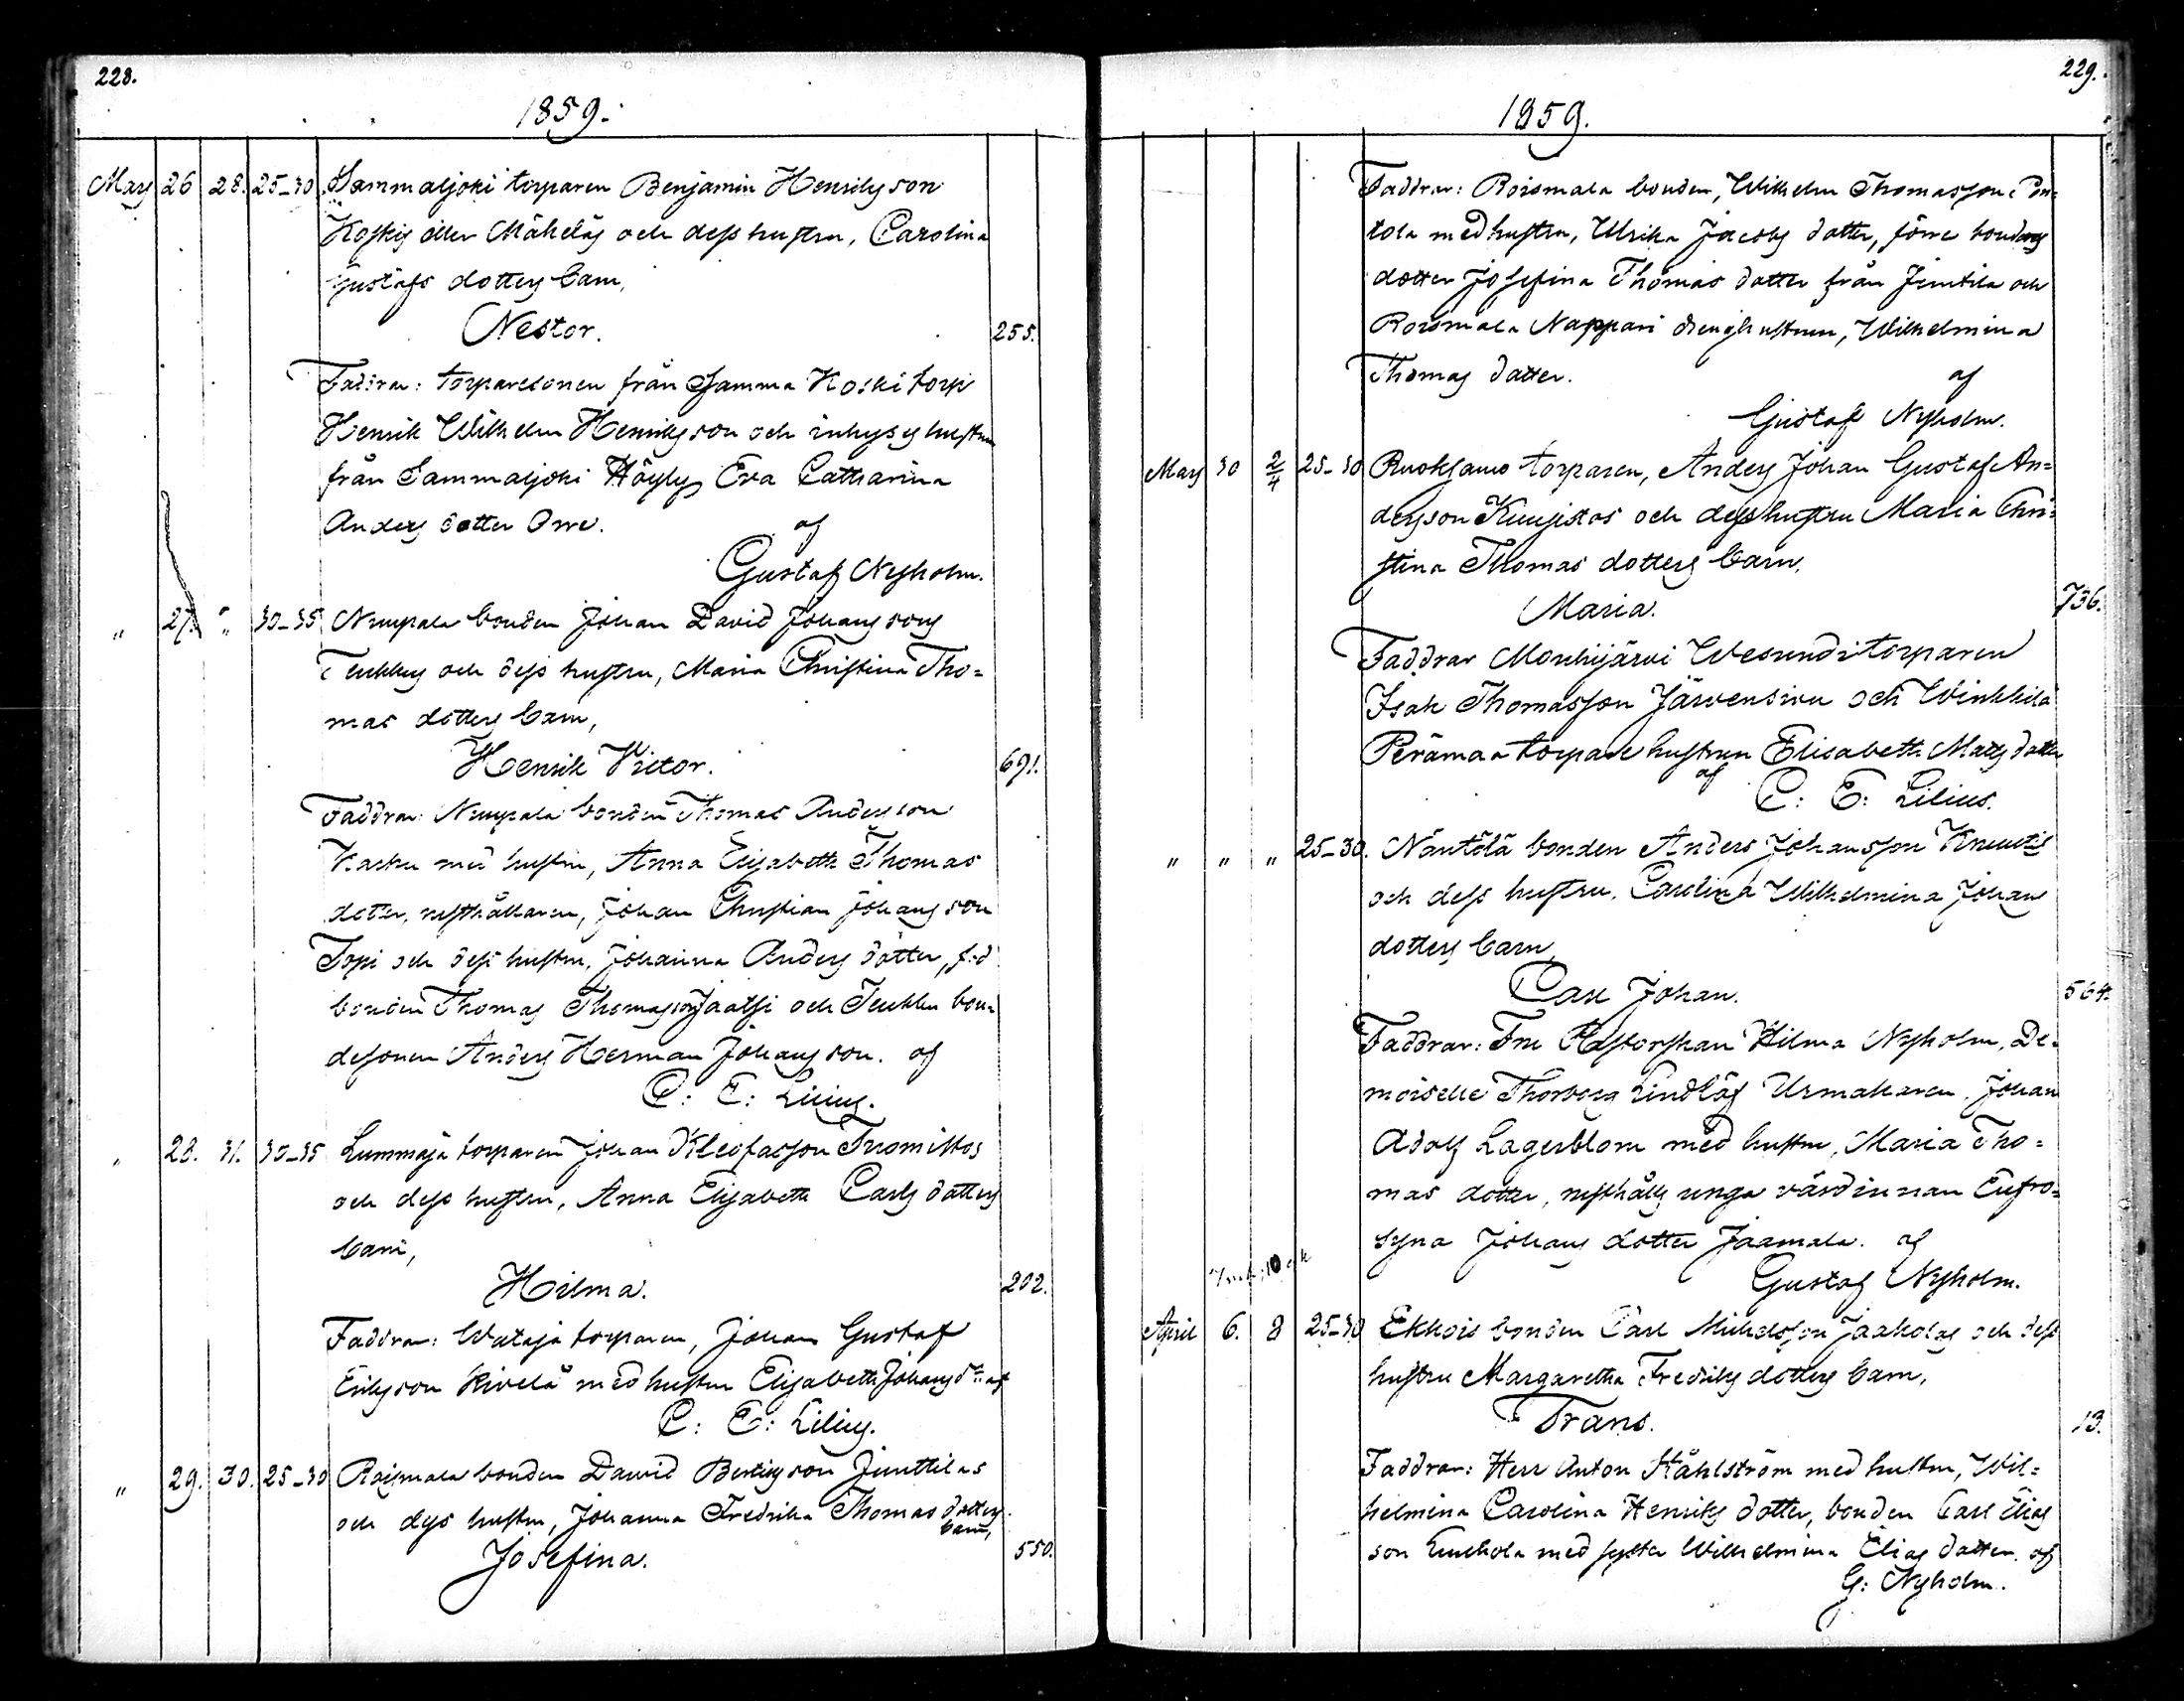 228.
1859.
Mars 26 28. 25-30 Sammaljoki torparen Benjamin Henriksson
Koskis eller Mäkeläs och dess hustru, Carolina
Gustafs dotters barn,
Nestor. 255.
Faddrar: torparesonen från samma Koski torp
Henrik Wilhelm Henriksson och inhyses hustrun
från Sammaljoki Höylys Eva Catharina
Anders dotter Orre. af
Gustaf Nyholm.
" 27. " 30-35 Nuupala bonden Johan David Johans sons
Teukkus och dess hustru, Maria Christina Tho=
mas dotters barn,
Henrik Victor. 691.
Faddrar: Nuupala bonden Thomas Andersson
Kacku med hustru, Anna Elisabeth Thomas
dotter, rusthållaren, Johan Christian Johans son
Topi och dess hustru, Johanna Anders dotter, f:d
bonden Thomas Thomasson Jaatsi och Teukku bon=
desonen Anders Herman Johans son. af
C: E: Lilius.
" 28. 31. 30-35 Lummaja torparen Johan Kleofasson Tuomistos
och dess hustru, Anna Elisabeth Carls dotters
barn,
Hilma. 202.
Faddrar: Wataja torparen, Johan Gustaf
Eriksson Kivelä med hustru Elisabeth Johans dr: af
C: E: Lilius.
" 29. 30. 25-30 Roismala bonden David Bertisson Junttilas
och dess hustru, Johanna Fredrika Thomas dotters
barn,
Josefina. 550.
229.
1859.
Faddrar: Roismala bonden, Wilhelm Thomasson Pon=
tola med hustru, Ulrika Jacobs dotter, förre bondens
dotter Josefina Thomas dotter från Junttila och
Roismala Nappari drenghustrun, Wilhelmina
Thomas dotter. af
Gustaf Nyholm.
Mars 30 2/4 25-30 Ruoksamo torparen, Anders Johan Gustaf An=
dersson Kuusistos och dess hustru Maria Chri=
stina Thomas dotters barn,
Maria. 736.
Faddrar Mouhijärvi Wesunditorparen
Isak Thomasson Järvensivu och Winkkilä
Perämaa torpare hustrun Elisabeth Matts dotter
af
C: E: Lilius.
" " " 25-30. Näntölä bonden Anders Johansson Knuutis
och dess hustru, Carolina Wilhelmina Johans
dotters barn,
Carl Johan. 564.
Faddrar: Fru Pastorskan Hilma Nyholm, De=
moiselle Thorborg Lindlöf Urmakaren, Johan
Adolf Lagerblom med hustru, Maria Tho=
mas dotter, rusthålls unga värdinnan Eufro=
syna Johans dotter Jaamala. af
Gustaf Nyholm.
April 6. 8 25-30 Ekkois bonden Carl Michelsson Jaakolas och dess
hustru Margaretha Fredriks dotters barn,
Frans. 13.
Faddrar: Herr Anton Ståhlström med hustru, Wil=
helmina Carolina Henriks dotter, bonden Carl Elias
son med syster Wilhelmina Elias dotter. af
G: Nyholm.